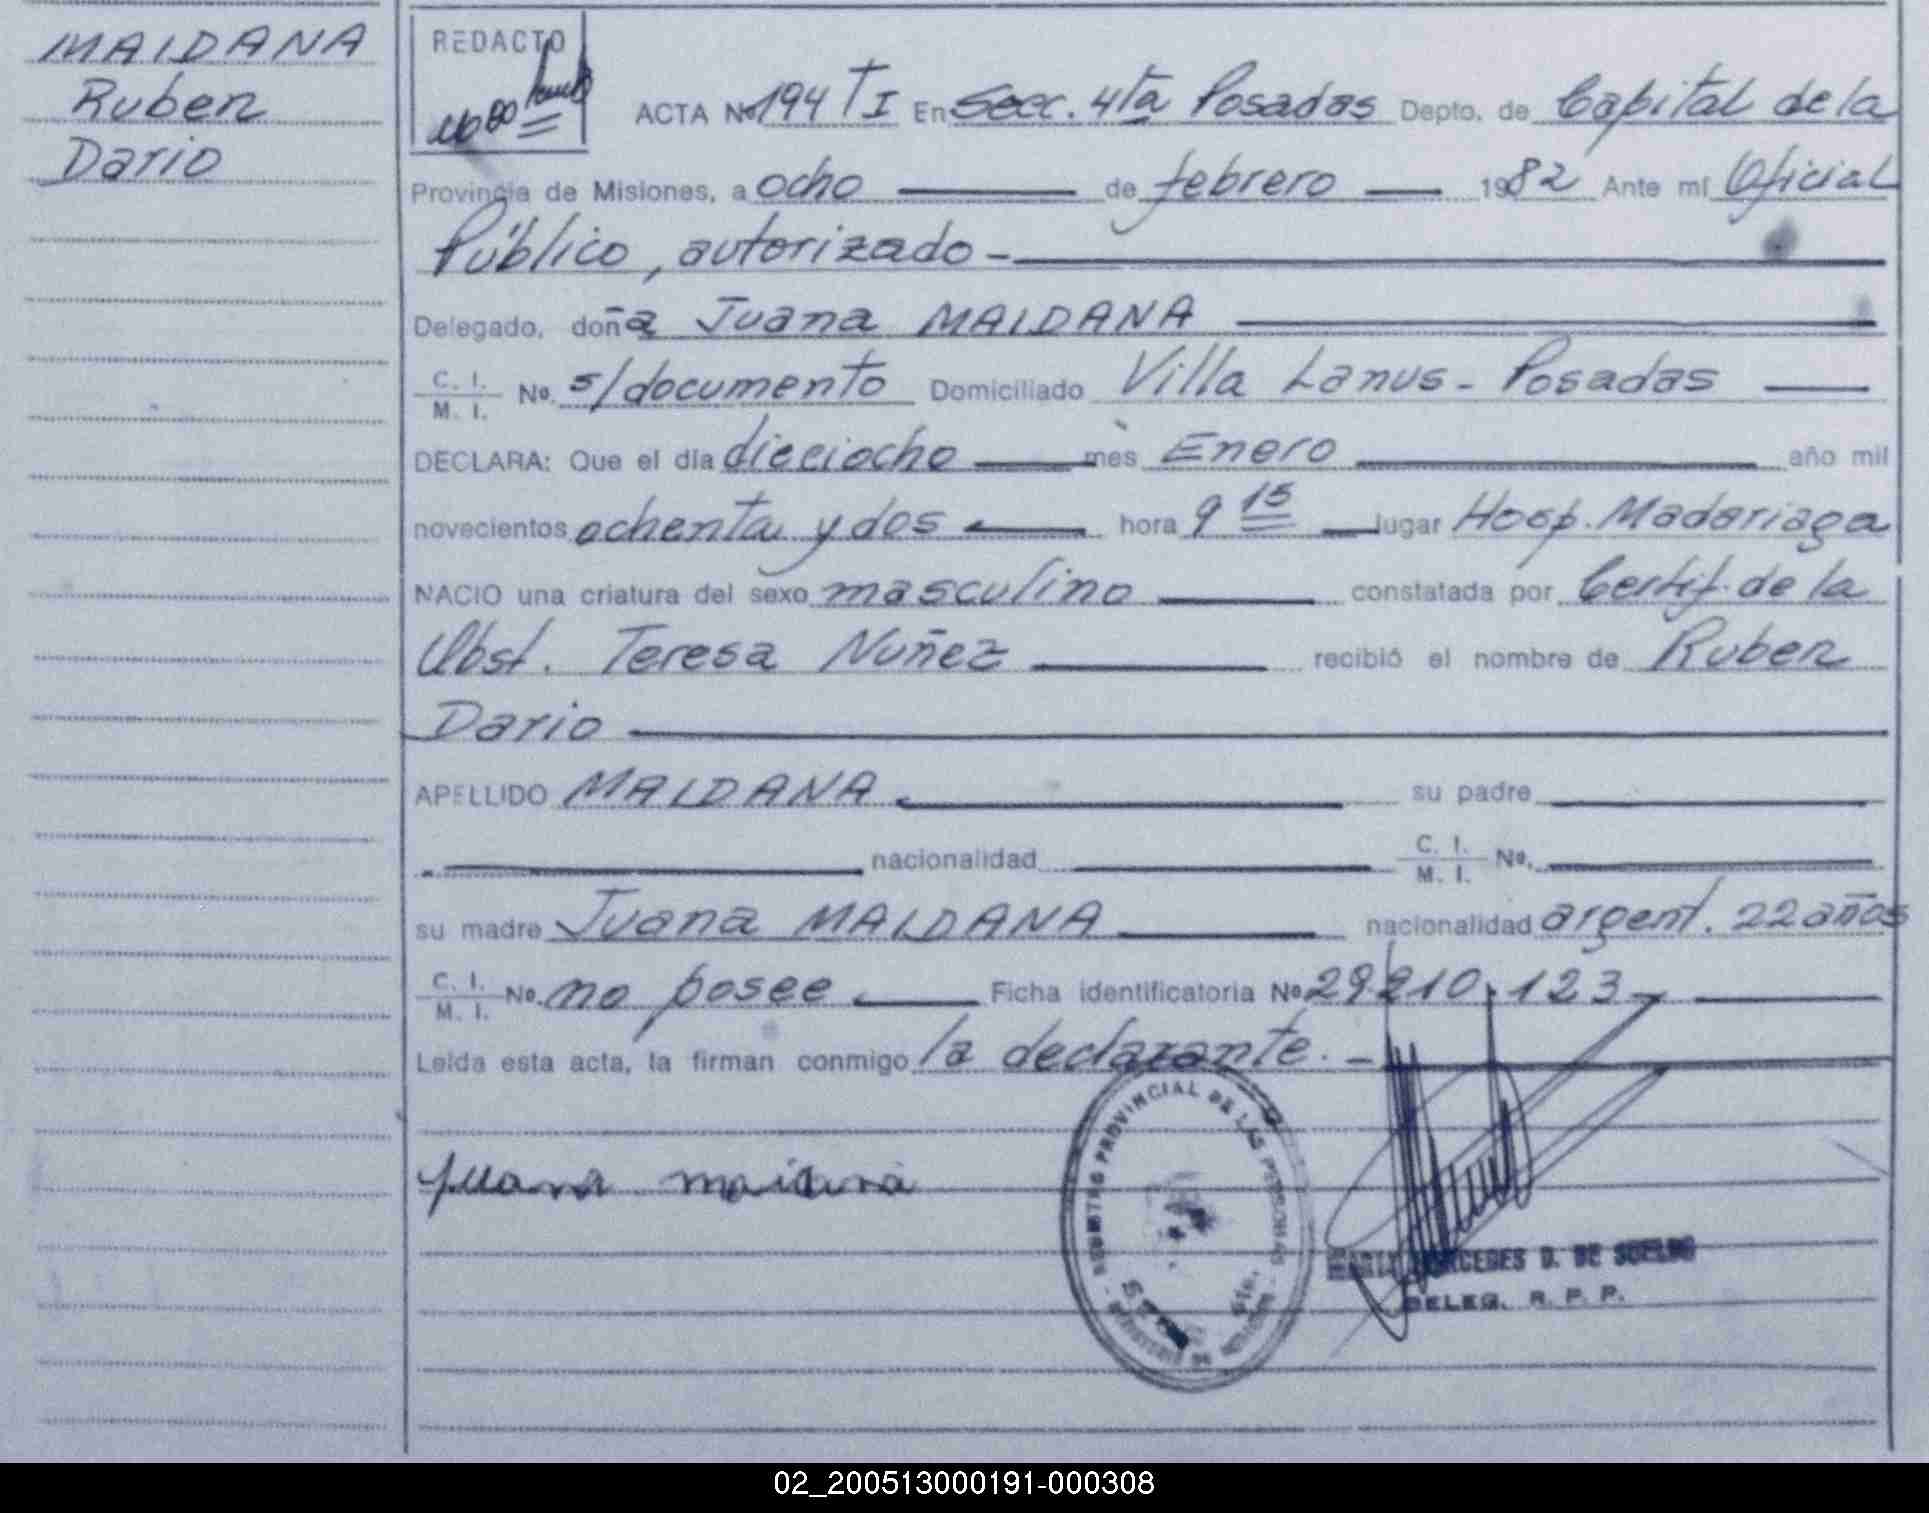 MAIDANA
Ruben
Dario
REDACTO
ACTA No 194 T I En Secc. 4ta Posadas Depto. de Capital de la
Provincia de Misiones, a ocho de febrero 1982 Ante mí Oficial
Público, autorizado -
Delegado, doña Juana MAIDANA
C. I. / M. I. No. s/documento Domiciliado Villa Lanus - Posadas
DECLARA: Que el día dieciocho mes Enero año mil
novecientos ochenta y dos hora 9 15 lugar Hosp. Madariaga
NACIO una criatura del sexo masculino constatada por Certif. de la
Obst. Teresa Nuñez recibió el nombre de Ruben
Dario
APELLIDO MAIDANA su padre
nacionalidad C. I. / M. I. No.
su madre Juana MAIDANA nacionalidad argent. 22 años
C. I. / M. I. No. no posee Ficha identificatoria No 29210.123
Leída esta acta, la firman conmigo la declarante. -
Juana maidana
REGISTRO PROVINCIAL DE LAS PERSONAS
DE SUELDO
DELEG. R. P. P.
02_200513000191-000308